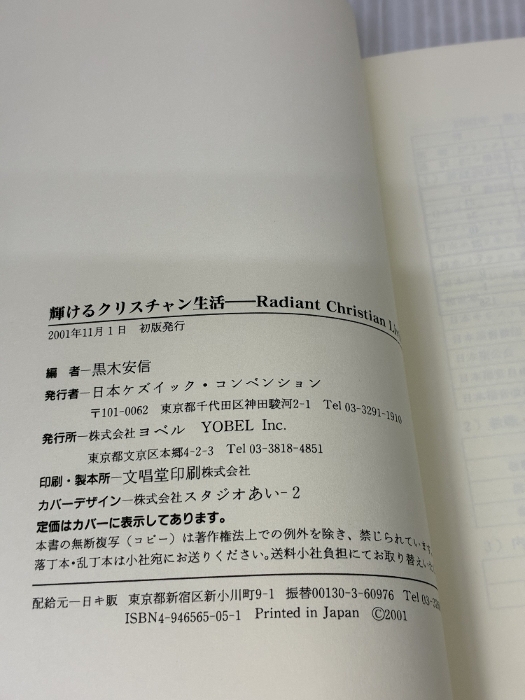 輝けるクリスチャン生活――Radiant Christian
2001年11月1日　初版発行
編　者―黒木安信
発行者―日本ケズィック・コンベンション
〒101-0062　東京都千代田区神田駿河2-1　Tel 03-3291-1910
発行所―株式会社ヨベル　YOBEL Inc.
東京都文京区本郷4-2-3　Tel 03-3818-4851
印刷・製本所―文唱堂印刷株式会社
カバーデザイン―株式会社スタジオあい-2
定価はカバーに表示してあります。
本書の無断複写（コピー）は著作権法上での例外を除き、禁じられています。
落丁本・乱丁本は小社宛にお送りください。送料小社負担にてお取り替え
配給元―日キ販　東京都新宿区新小川町9-1　振替00130-3-60976　Tel
ISBN4-946565-05-1　Printed in Japan　Ⓒ2001